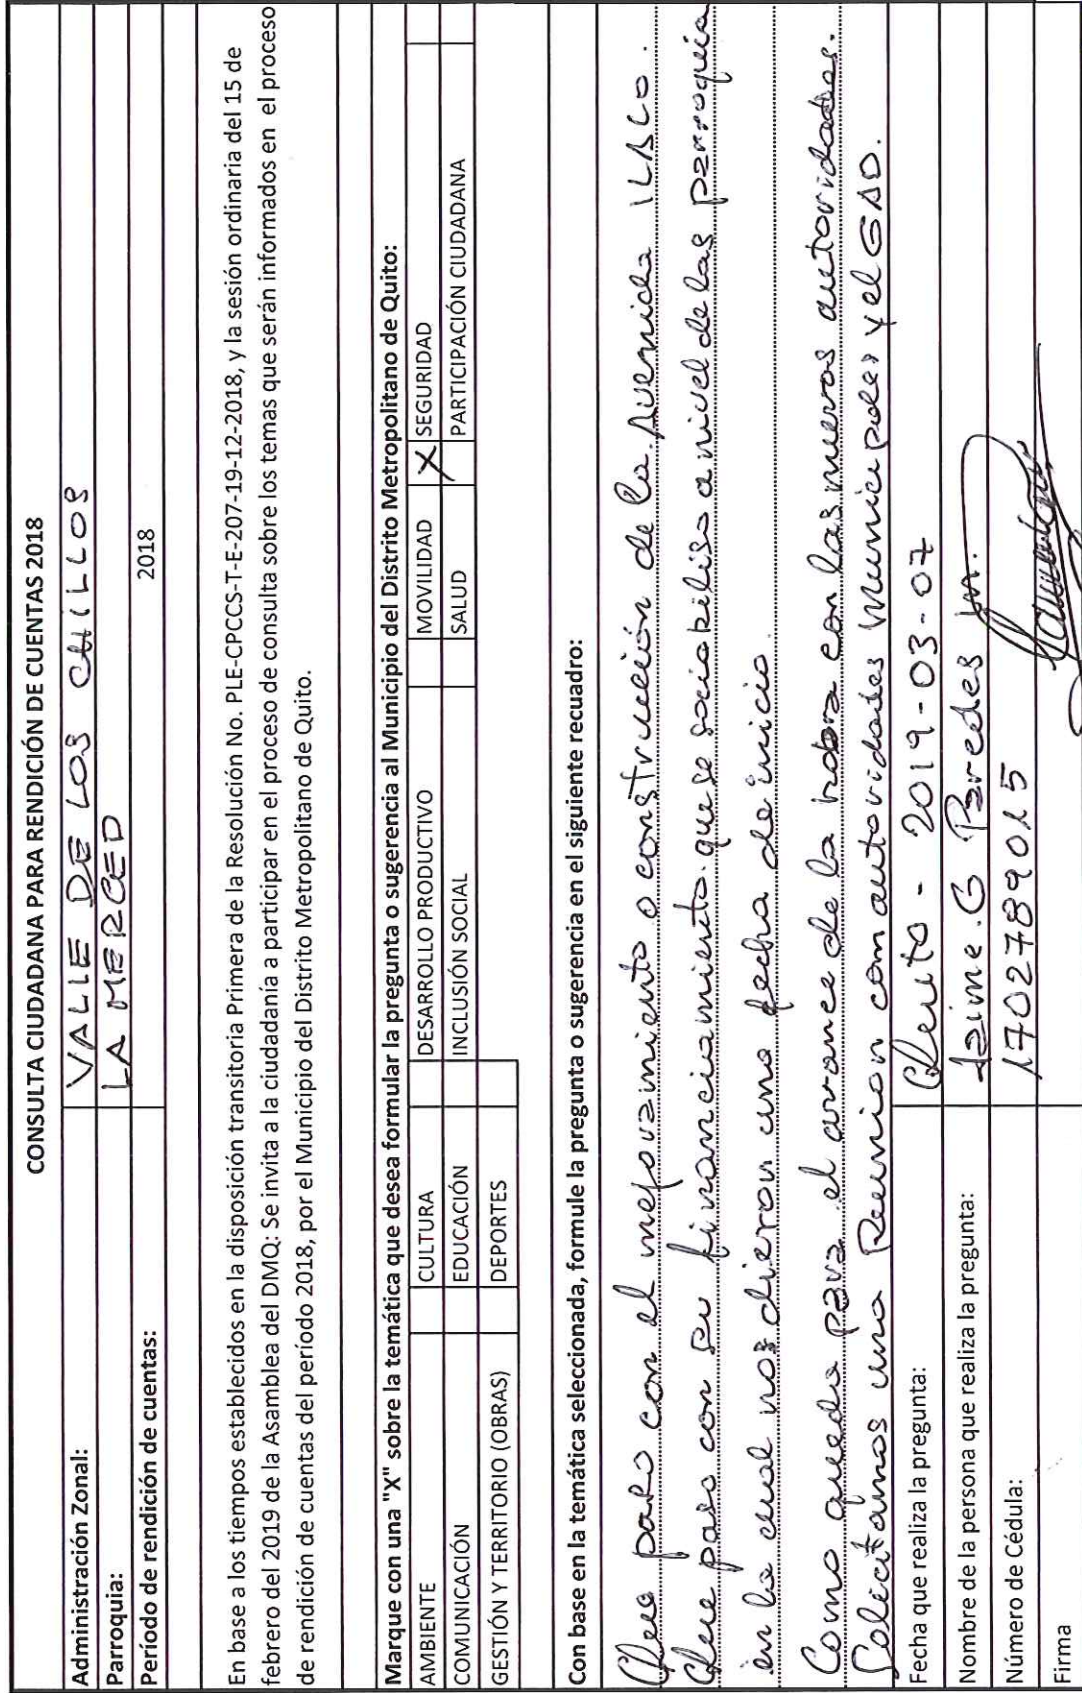 CONSULTA CIUDADANA PARA RENDICIÓN DE CUENTAS 2018
Administración Zonal: VALLE DE LOS CHILLOS
Parroquia: LA MERCED
Período de rendición de cuentas: 2018
En base a los tiempos establecidos en la disposición transitoria Primera de la Resolución No. PLE-CPCCS-T-E-207-19-12-2018, y la sesión ordinaria del 15 de
febrero del 2019 de la Asamblea del DMQ: Se invita a la ciudadanía a participar en el proceso de consulta sobre los temas que serán informados en el proceso
de rendición de cuentas del período 2018, por el Municipio del Distrito Metropolitano de Quito.
Marque con una "X" sobre la temática que desea formular la pregunta o sugerencia al Municipio del Distrito Metropolitano de Quito:
AMBIENTE CULTURA DESARROLLO PRODUCTIVO MOVILIDAD X SEGURIDAD
COMUNICACIÓN EDUCACIÓN INCLUSIÓN SOCIAL SALUD PARTICIPACIÓN CIUDADANA
GESTIÓN Y TERRITORIO (OBRAS) DEPORTES
Con base en la temática seleccionada, formule la pregunta o sugerencia en el siguiente recuadro:
Que paso con el mejoramiento o construcción de la Avenida ILALO.
Que paso con su financiamiento. que se sociabiliso a nivel de las parroquia
en la cual nos dieron una fecha de inicio.
Como queda para el avance de la hobra con las nuevas autoridades.
Solicitamos una Reunion com autoridades Municipales y el GAD.
Fecha que realiza la pregunta: Quito - 2019-03-07
Nombre de la persona que realiza la pregunta: Jaime. G Paredes
Número de Cédula: 1702789015
Firma